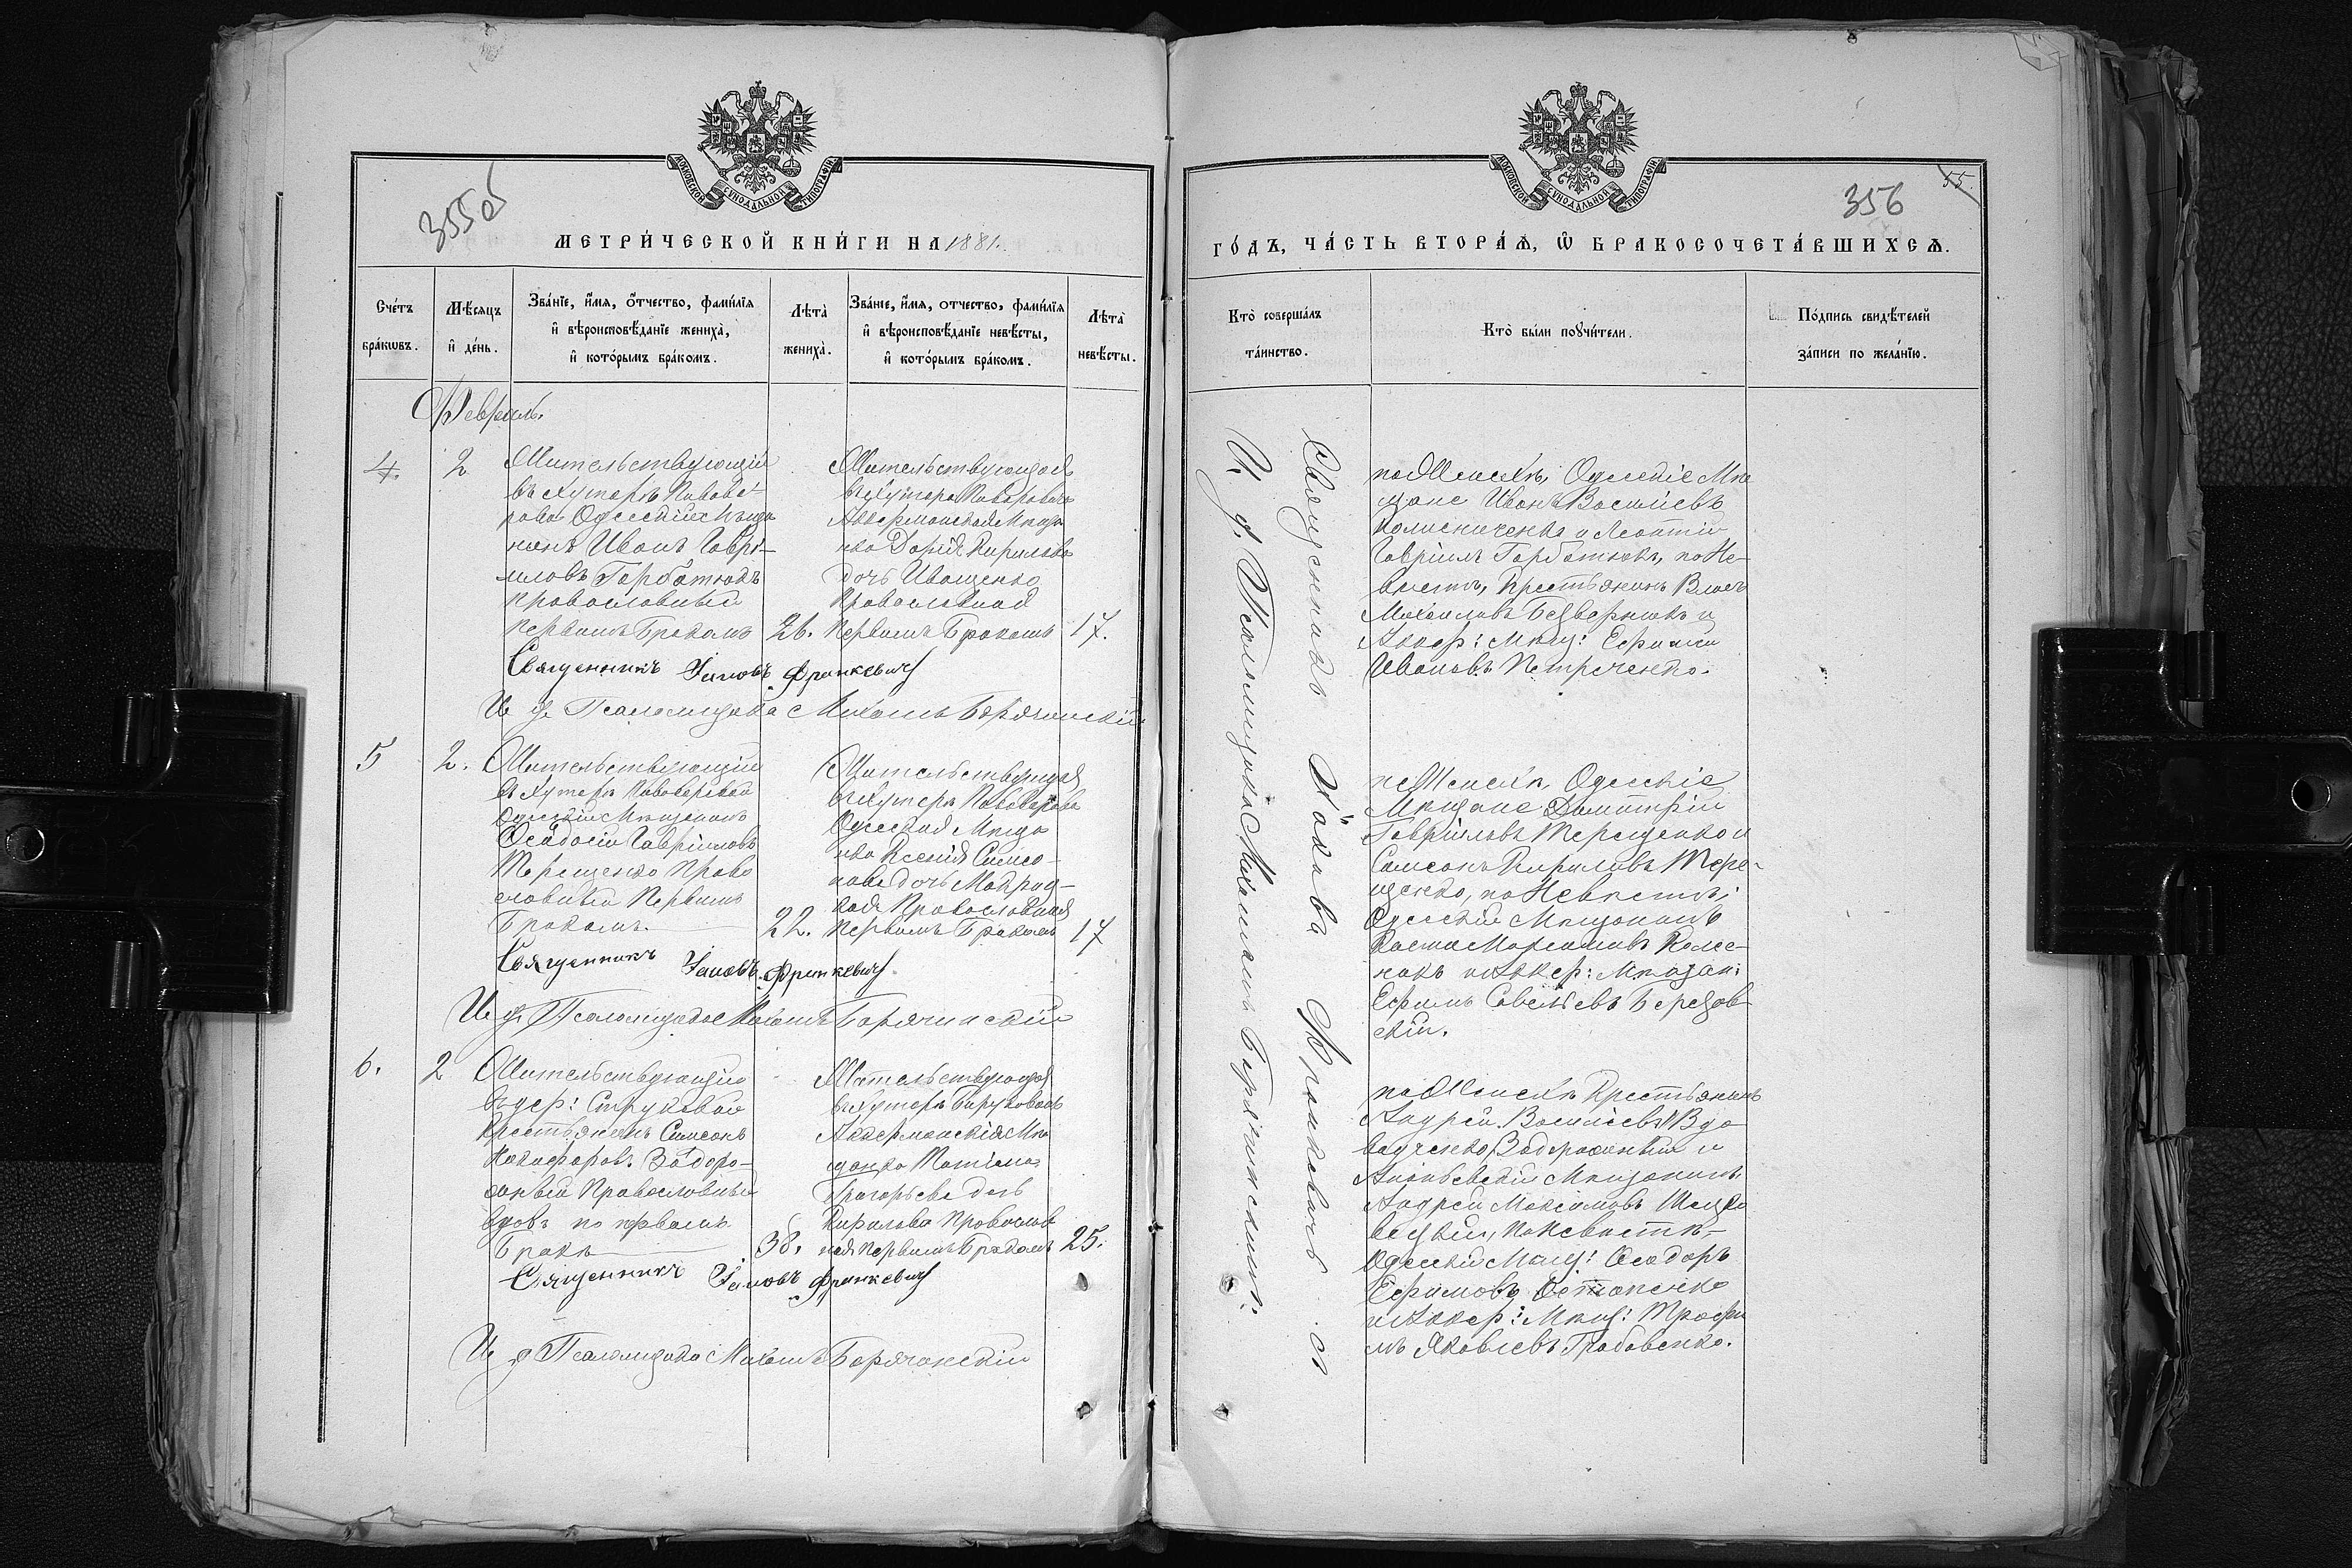 355 об
МОСКОВСКОЙ СѴНОДАЛЬНОЙ ТИПОГРАФІИ
МЕТРИ́ЧЕСКОЙ КНИ́ГИ НА 1881.
Сче́тъ бра́кωвъ.
Мѣ́сяцъ и҆ де́нь.
Зва́нїе, и҆́мя, ѻ҆́тчество, фами́лїя
и҆ вѣроисповѣ́данїе жениха̀,
и҆ кото́рымъ бра́комъ.
Лѣта̀ жениха̀.
Зва́нїе, и҆́мя, отчество, фами́лїя
и҆ вѣроисповѣ́данїе невѣ́сты,
и҆ кото́рымъ бра́комъ.
Лѣта̀ невѣ́сты.
Февраль.
4.
2
Жительствующій
въ хуторѣ Пивова-
рова Одесскій Мѣща
нинъ Иванъ Гаврі-
иловъ Горбатюкъ
православный
первымъ бракомъ
26.
Жительствующая
въ хуторѣ Пиварова
Аккерманская Мѣща
нка Дарія Кирилова
дочь Иващенко
православная
первымъ бракомъ
17.
Священникъ Іаковъ Франкевичъ
И. д. Псаломщика Михаилъ Борячинскій
5
2.
Жительствующій
въ хуторѣ
Одесскій Мѣщанинъ
Ѳеодосій Гавріиловъ
Терещенко Право
славный первымъ
бракомъ.
22.
Жительствующая
въ хуторѣ Пивоварова
Одесская Мѣща
нка Ксенія Симео-
нова дочь
православная
первымъ бракомъ
17
Священникъ Іаковъ Франкевичъ.
И. д. Псаломщика Михаилъ Борячинскій
6.
2
Жительствующій
въ дер: Струковой
Крестьянинъ Симеонъ
Никифоровъ Задоро-
жный православный
вдовъ по первомъ
бракѣ
38.
Жительствующая
въ хуторѣ
Аккерманская Мѣ
щанка Татіана
Григорьева дочь
Кирилова православ
ная первымъ бракомъ
25.
Священникъ Іаковъ Франкевичъ
И. д. Псаломщика Михаилъ Борячинскій
МОСКОВСКОЙ СѴНОДАЛЬНОЙ ТИПОГРАФІИ
55.
356
ГО́ДЪ, ЧА́СТЬ ВТОРА́Ѧ, Ѽ БРАКОСОЧЕТА́ВШИХСѦ.
Кто̀ соверша́лъ
та́инство.
Кто̀ бы́ли порꙋчи́тели.
По́дпись свидѣ́телей
за́писи по жела́нїю.
Священникъ Іаковъ Франкевичъ съ
И. д. Псаломщика Михаиломъ Борячинскимъ.
по Женихѣ, Одесскіе Мѣ
щане Иванъ Васильевъ
Колисниченко и Леонтій
Гавріиловъ Горбатюкъ, по Не-
вѣстѣ, Крестьянинъ Власъ
Михаиловъ Безверхнюкъ и
Аккер: Мѣщ: Ефимъ
Ивановъ Петреченко.
по Женихѣ, Одесскіе
Мѣщане Димитрій
Гавріиловъ Терещенко и
Симеонъ Кириловъ Тере-
щенко, по Невѣстѣ:
Одесскій Мѣщанинъ
Максимовъ Колес-
никъ и Аккер: Мѣщан:
Ефимъ Савельевъ Березов-
скій.
по Женихѣ Крестьянинъ
Андрей Васильевъ Вдо
виченко, Задорожный и
Ананьевскій Мѣщанинъ
Андрей Максимовъ
по Невѣстѣ-
Одесскій Мѣщ: Ѳеодоръ
Ефимовъ Остапенко
и Аккер: Мѣщ: Трофи
мъ Яковлевъ Грабовенко.